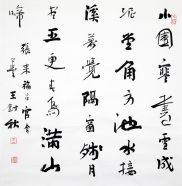 小園寒盡雪成
泥堂角方池水接
溪夢覺隔窗殘月
盡五更春鳥滿山
啼
張耒福昌官舍
王秋